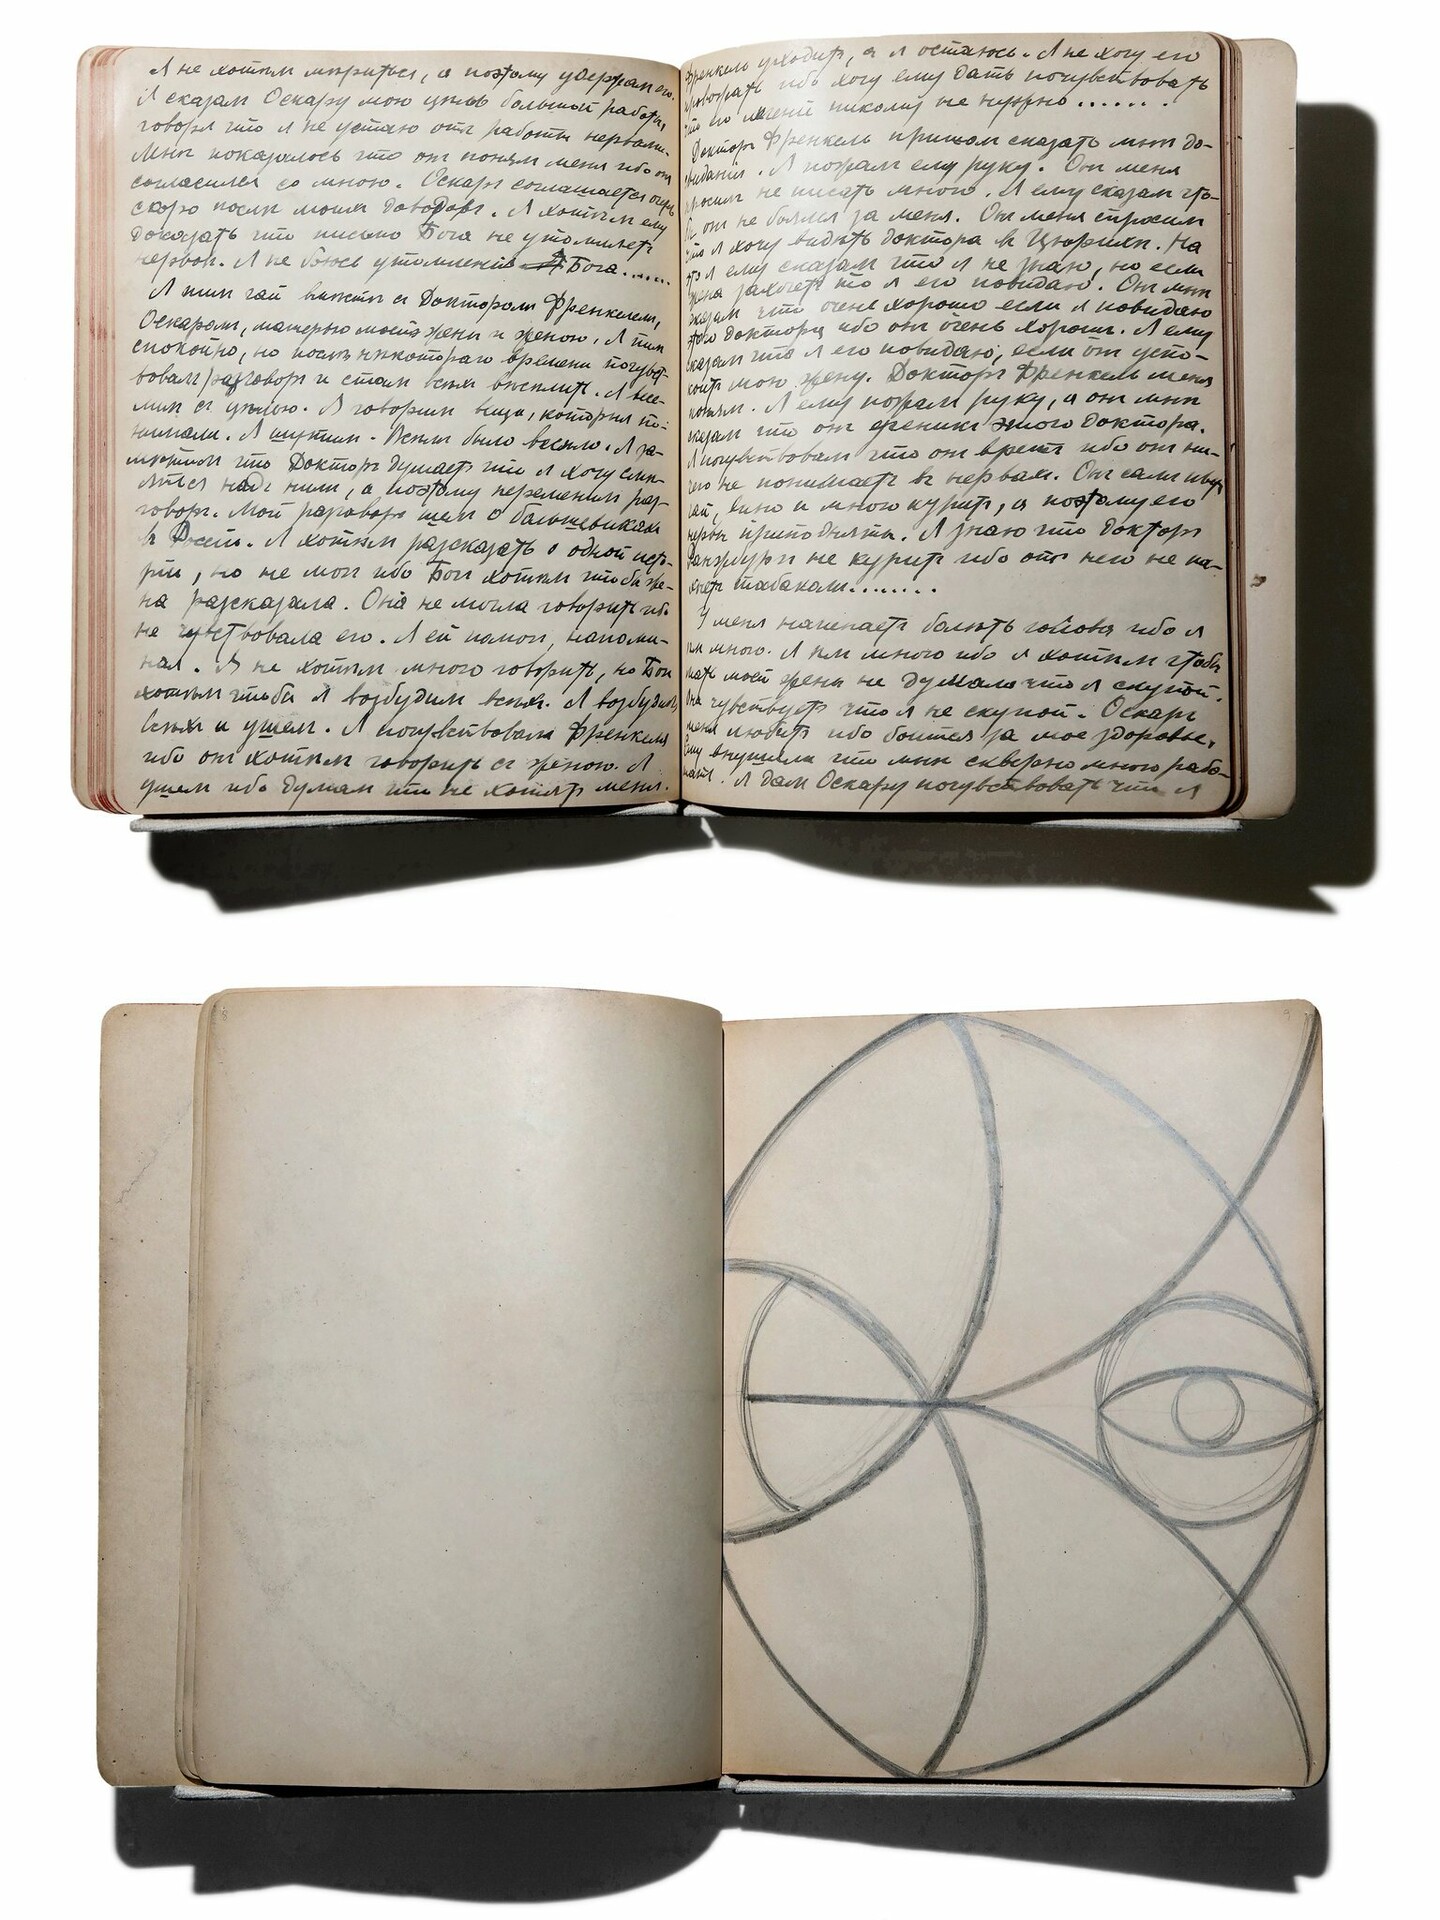 Я не хотѣл мириться, а поэтому удержал его.
Я сказал Оскару мою цѣль большой работы,
говоря что я не устаю от работы нервами.
Мнѣ показалось что он понял меня ибо он
согласился со мною. Оскар соглашается очень
скоро послѣ моих доводов. Я хотѣл ему
доказать что письмо Бога не утомляет
нервов. Я не боюсь утомленія Бога......
Я пил чай вмѣстѣ с Доктором Френкелем,
Оскаром, матерью моей жены и женою. Я пил
спокойно, но послѣ нѣкотораго времени почувст-
вовал разговор и стал всѣх веселить. Я весе-
лил с цѣлью. Я говорил вещи, которыя по-
нимали. Я шутил. Всѣм было весело. Я за-
мѣтил что Доктор думает что я хочу смѣ-
яться над ним, а поэтому перемѣнил раз-
говор. Мой разговор шел о большевиках
в Россіи. Я хотѣл разсказать о одной исто-
ріи, но не мог ибо Бог хотѣл чтобы же-
на разсказала. Она не могла говорить ибо
не чувствовала его. Я ей помог, напоми-
ная. Я не хотѣл много говорить, но Бог
хотѣл чтобы я возбудил всѣх. Я возбудил
всѣх и ушел. Я почувствовал Френкеля
ибо он хотѣл говорить с женою. Я
ушел ибо думал что не хотят меня.
Френкель уходит, а я остаюсь. Я не хочу его
провожать ибо хочу ему дать почувствовать
что его никому не нужно.......
Доктор Френкель пришол сказать мнѣ до-
свиданія. Я пожал ему руку. Он меня
просил не писать много. Я ему сказал что-
бы он не боялся за меня. Он меня спросил
что я хочу видѣть доктора в Цюрихѣ. На
это я ему сказал что я не знаю, но если
жена захочет то я его повидаю. Он мнѣ
сказал что очень хорошо если я повидаю
этого Доктора ибо он очень хорош. Я ему
сказал что я его повидаю, если он успо-
коит мою жену. Доктор Френкель меня
понял. Я ему пожал руку, а он мнѣ
сказал что он этого Доктора.
Я почувствовал что он врет ибо он ни-
чего не понимает в нервах. Он сам
чай, вино и много курит, а поэтому его
нервы приподняты. Я знаю что доктор
не курит ибо от него не па-
хнет табаком........
У меня начинает болѣть голова ибо я
ѣл много. Я ѣл много ибо я хотѣл чтобы
мать моей жены не думала что я скупой.
Она чувствует что я не скупой. Оскар
меня любит ибо боится за мое здоровье.
Ему внушили что мнѣ скверно много рабо-
тать. Я дам Оскару почувствовать что я